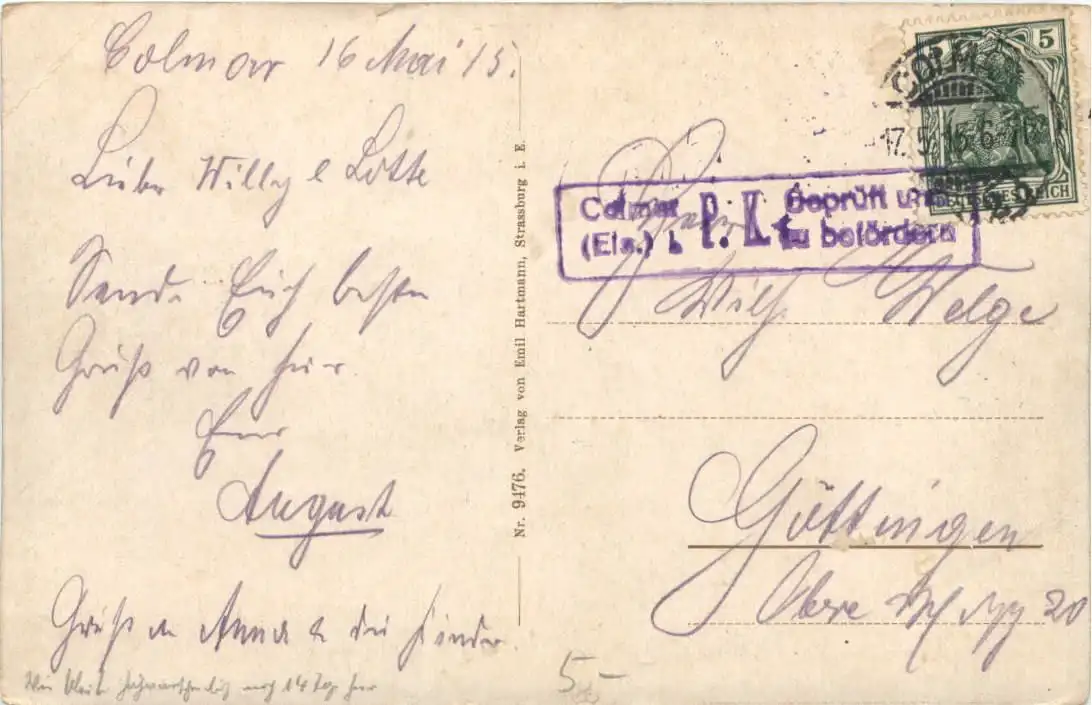 Colmar 16 Mai 15.
Liebe Willy & Lotte
Sende Euch besten
Gruß von hier.
Euer
August
Gruß an Anna & die Kinder.
14 Tage hier
Nr. 9476. Verlag von Emil Hartmann, Strassburg i. E.
5
DEUTSCHES REICH
COLMAR
17.5.15.6-7
Colmar P. K. Geprüft und
(Els.) b zu befördern
Wilh. Welge
Göttingen
Obere 20
5-